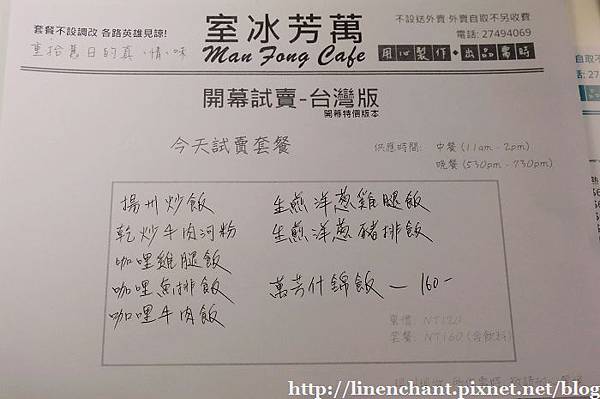 套餐不設調改 各路英雄見諒!
重拾舊日的真、情、味
萬芳冰室
Man Fong Cafe
不設送外賣 外賣自取不另收費
電話: 27494069
用心製作◆出品需時
開幕試賣-台灣版
開幕特價版本
今天試賣套餐
供應時間: 中餐 (11am - 2pm)
晚餐 (530pm - 730pm)
揚州炒飯
乾炒牛肉河粉
咖哩雞腿飯
咖哩魚排飯
咖哩牛肉飯
生煎洋葱雞腿飯
生煎洋葱豬排飯
萬芳什錦飯 — 160-
單價: NT120
套餐: NT160 (含飲料)
自取不
電
http://linenchant.pixnet.net/blog